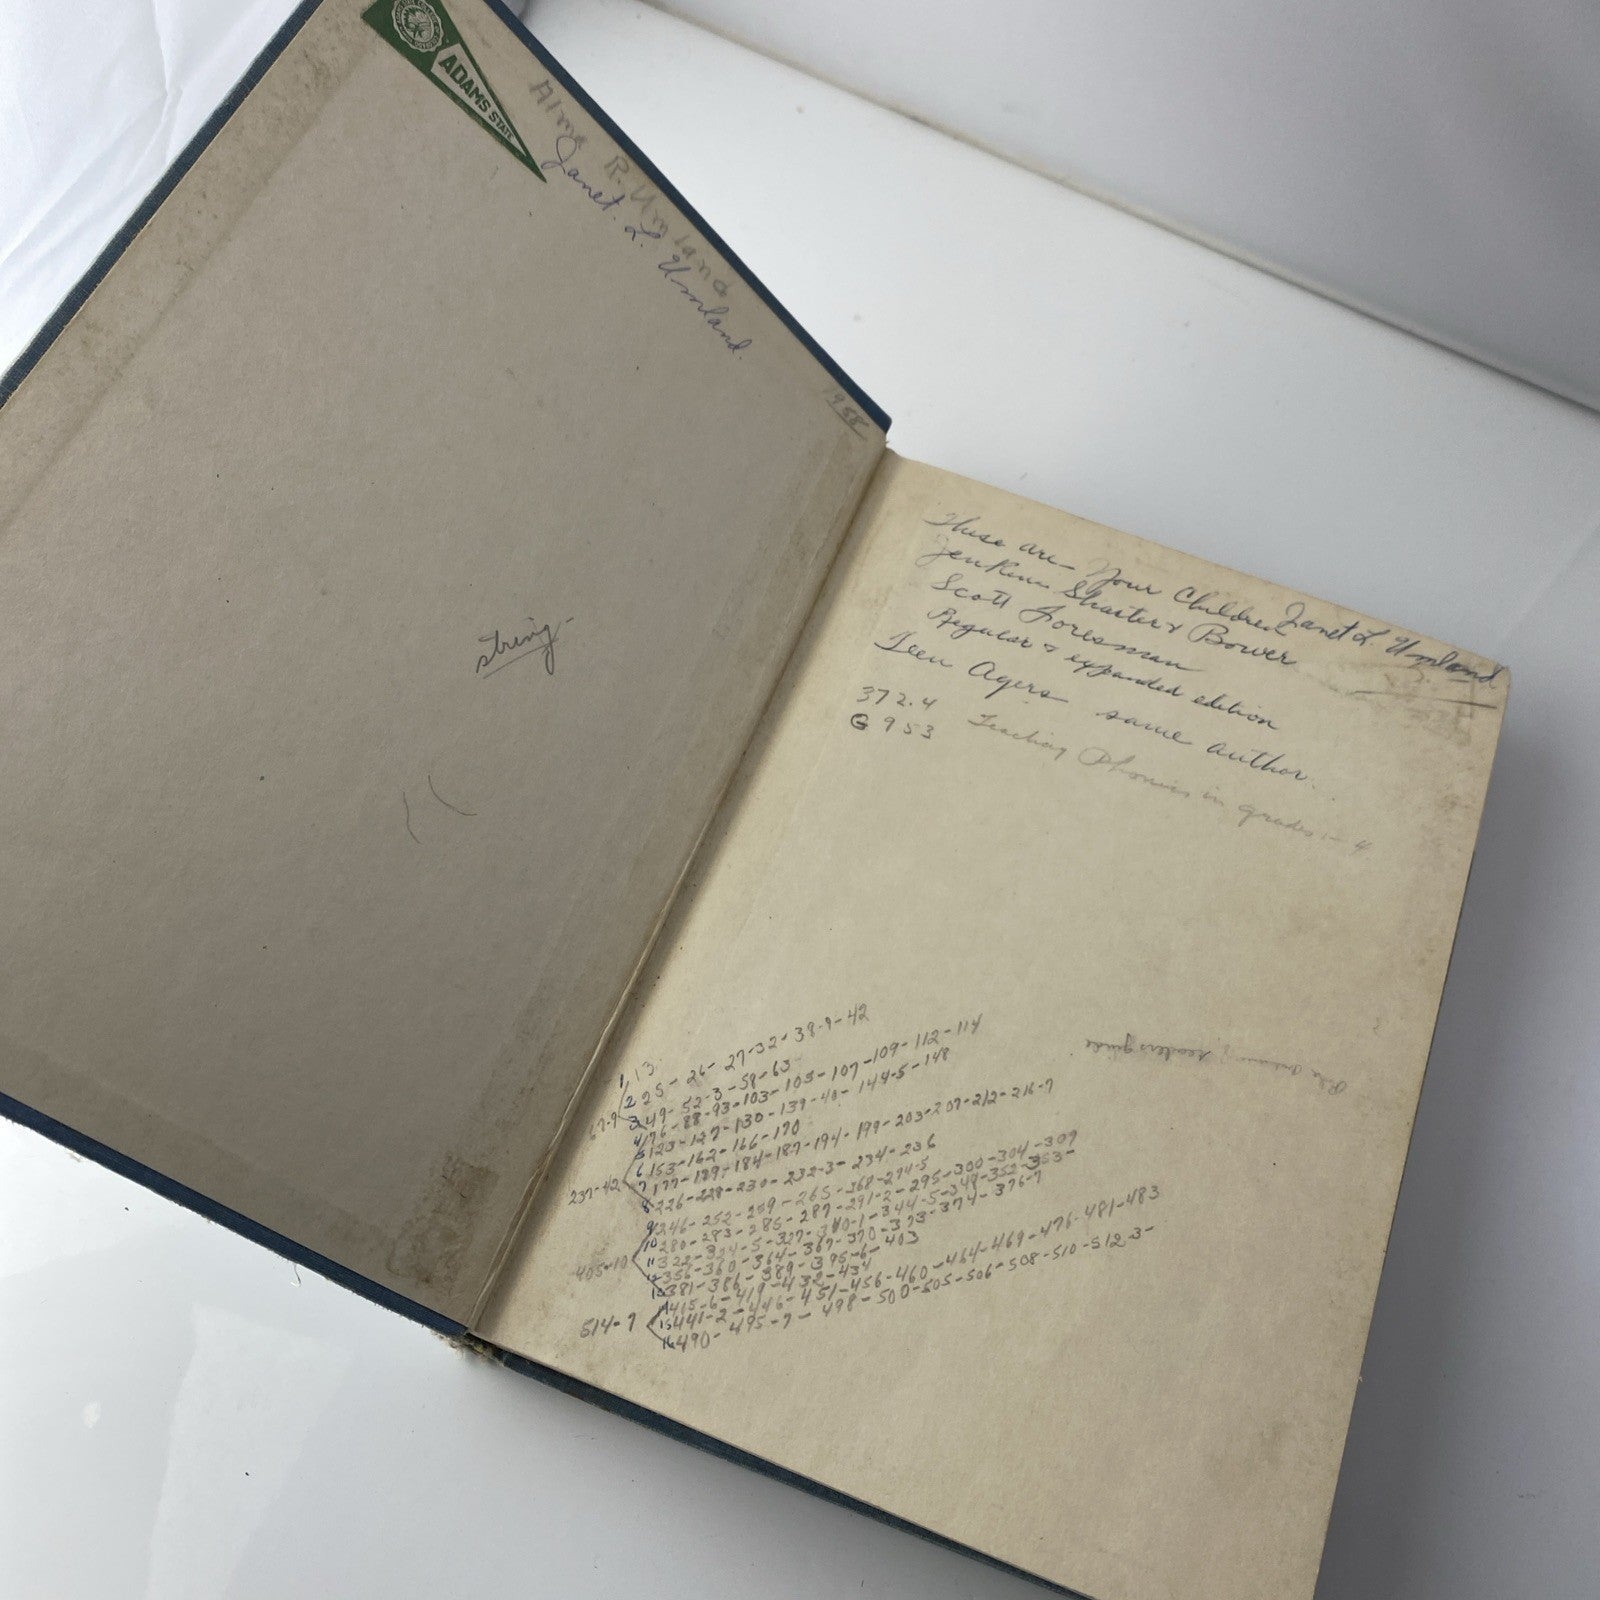 ADAMS STATE
Alma R. Umland
Janet. L. Umland.
1958
string
Janet L Umland
These are Your Children
Jenkins Shacter & Bower
Scott Foresman
Regular & expanded edition
Teen Agers same author...
372.4 Teaching Phonics in grades 1-4
G 953
teachers guide
1 13
2 25-26-27-32-38-9-42
3 49-52-3-58-63
67-9
4 76-88-93-103-105-107-109-112-114
5 123-127-130-139-40-144-5-148
6 153-162-166-170
7 177-189-184-187-194-199-203-207-212-216-7
237-42
8 226-228-230-232-3-234-236
9 246-252-259-265-268-274-5
10 280-283-285-287-291-2-295-300-304-307
11 322-324-5-327-340-1-344-5-348-352-353-
405-10
12 356-360-364-367-370-373-374-376-7
13 381-386-389-395-6-403
14 415-6-419-432-434
15 441-2-446-451-456-460-464-469-476-481-483
514-7
16 490-495-7-498-500-505-506-508-510-512-3-